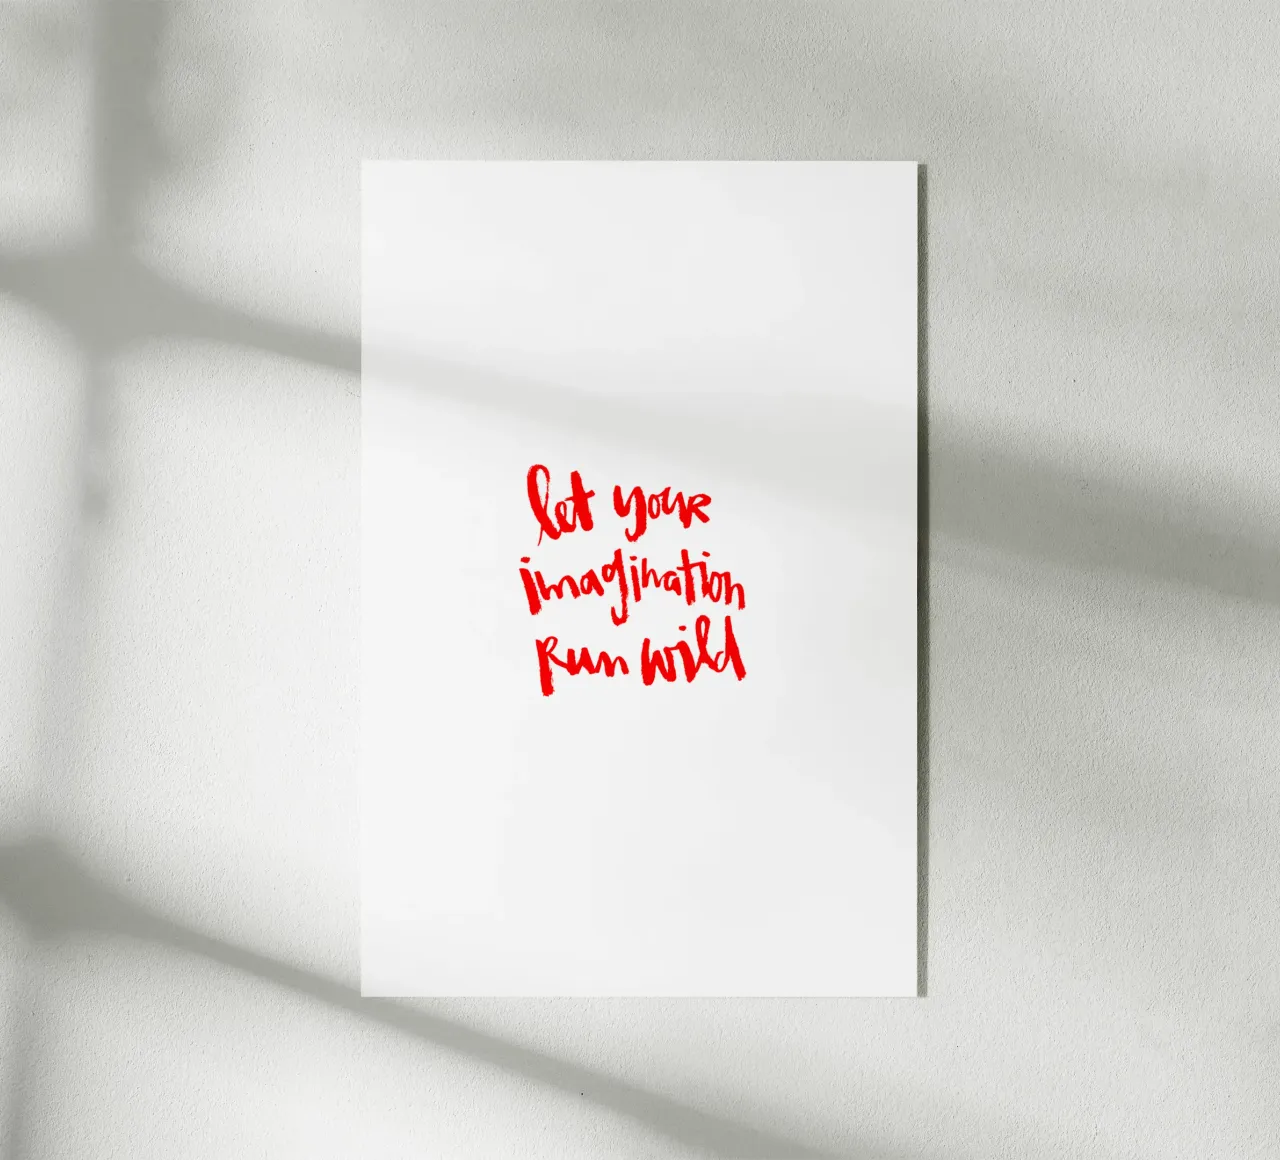 let your
imagination
run wild